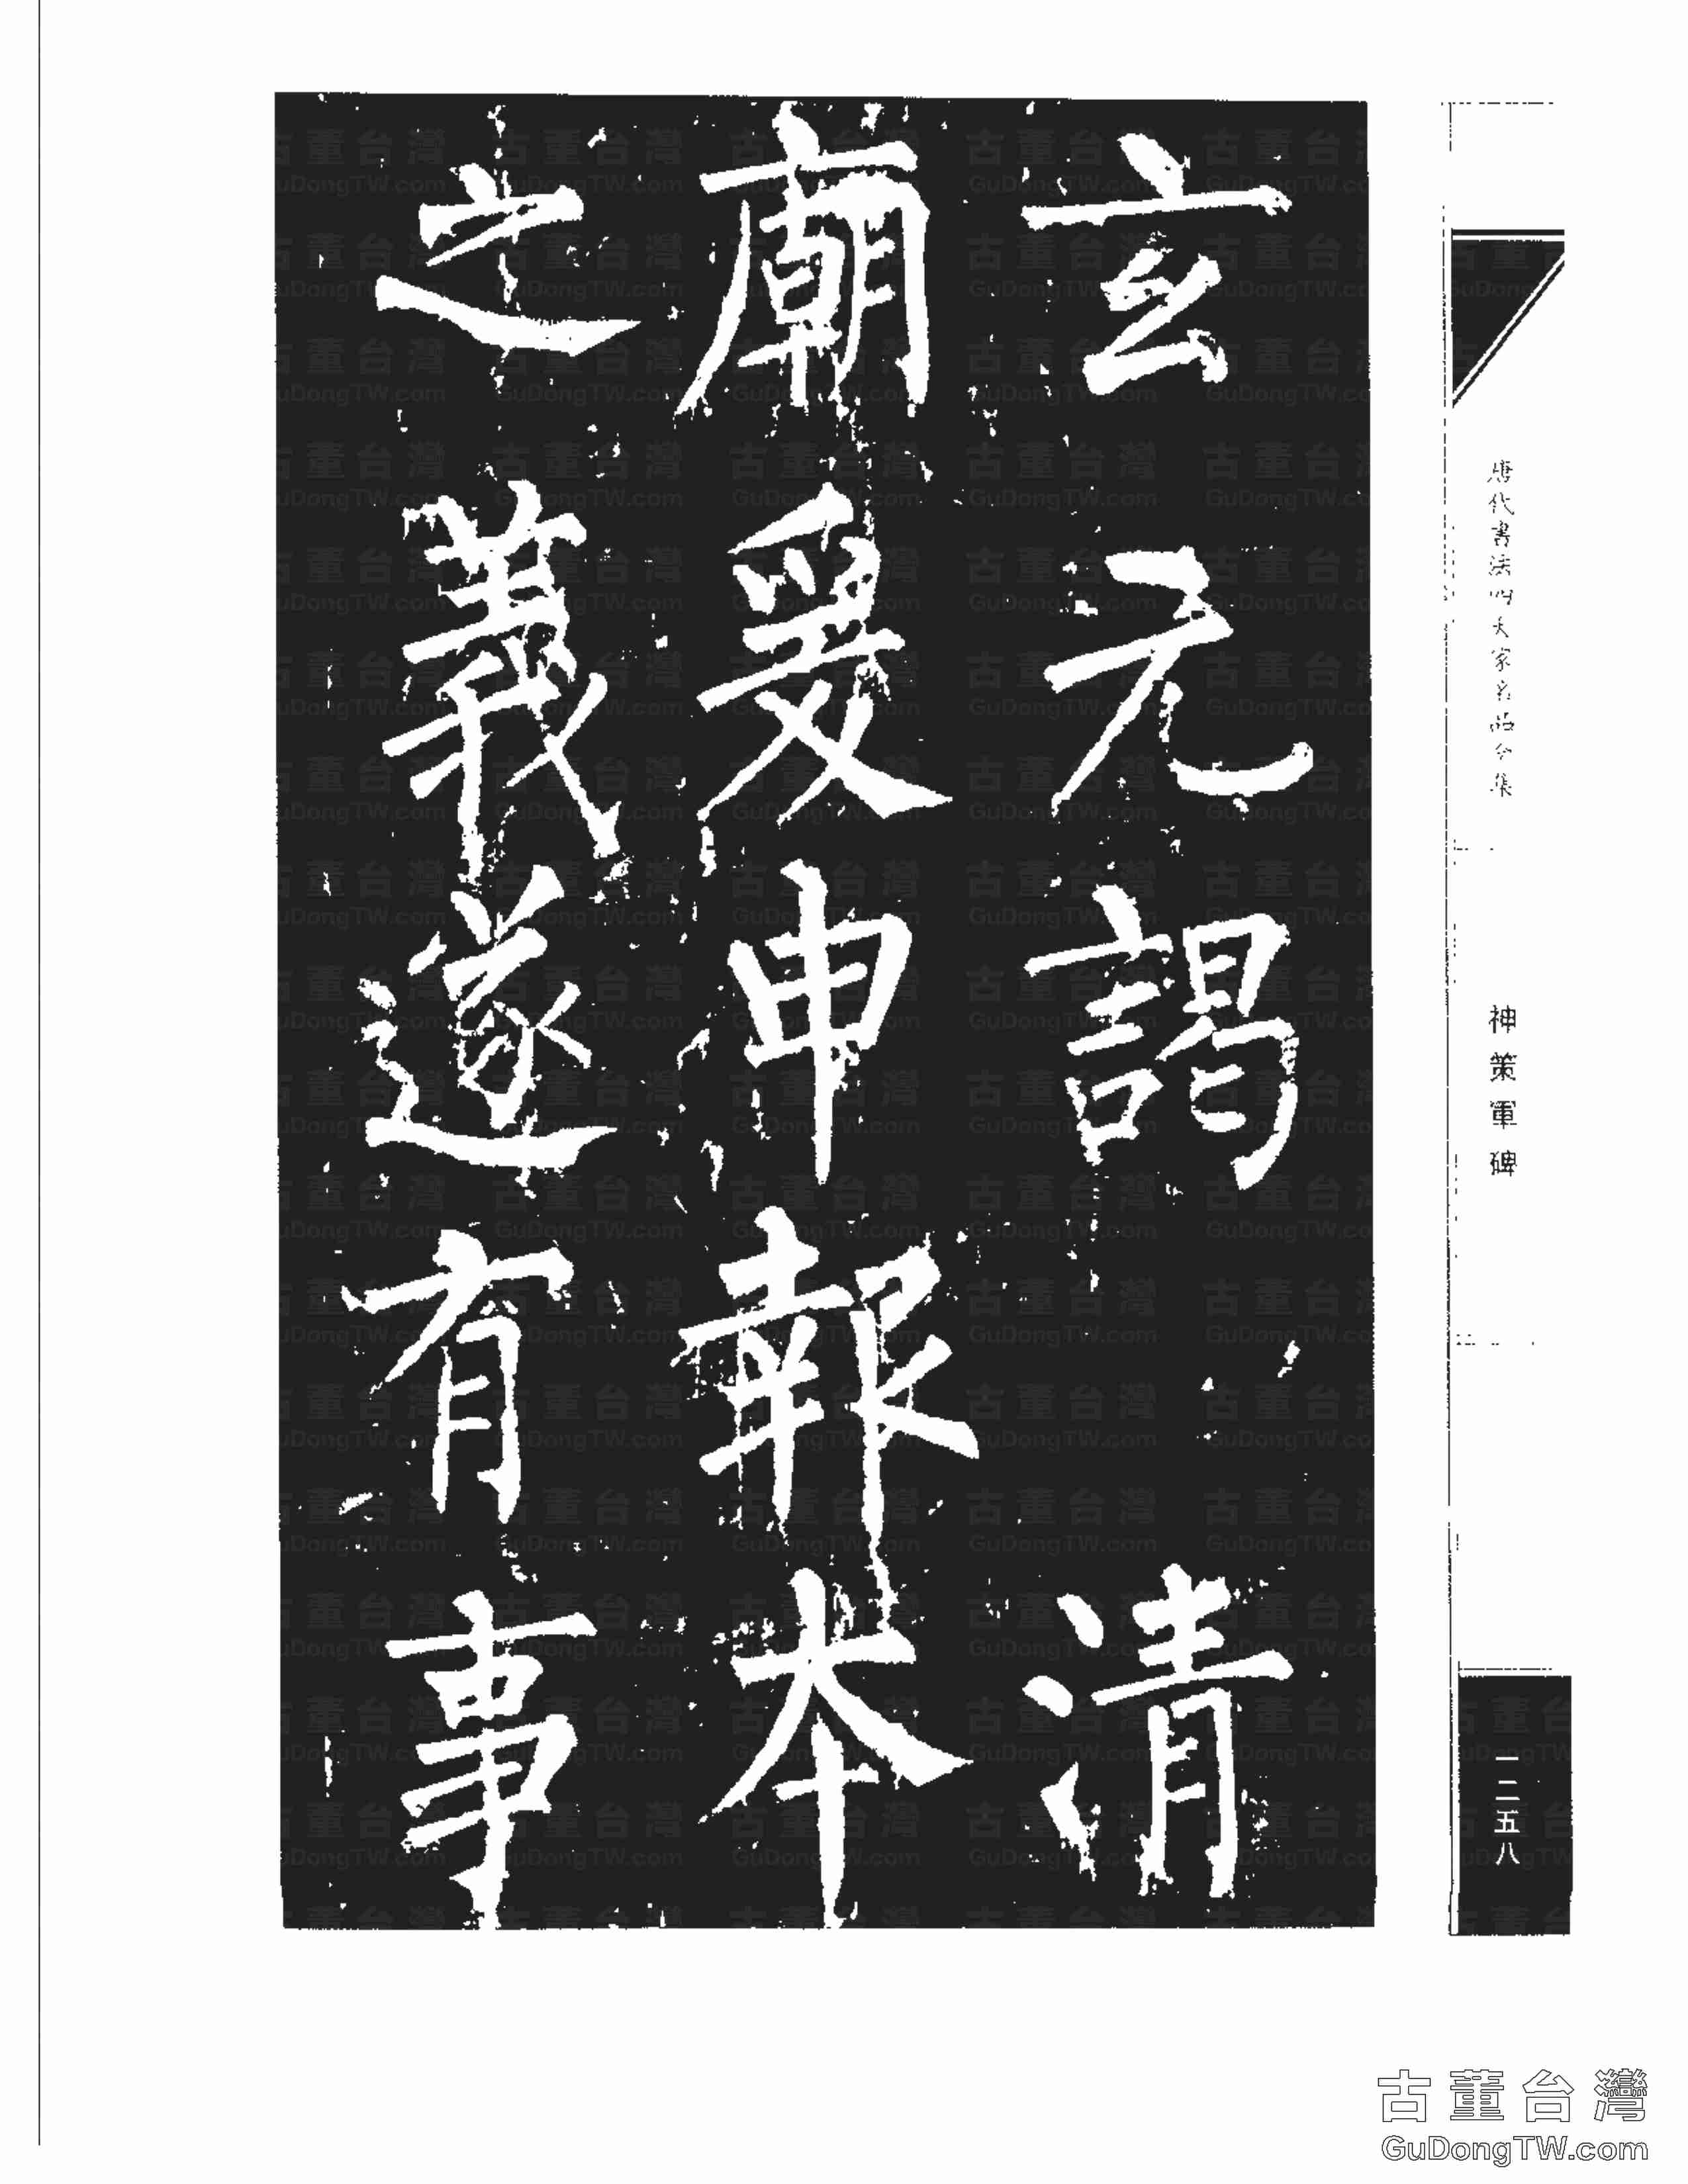 玄元謁　清
廟爰申報本
之義遂有事
唐代書法四大家名品全集
神策軍碑
一二五八
古董台灣
GuDongTW.com